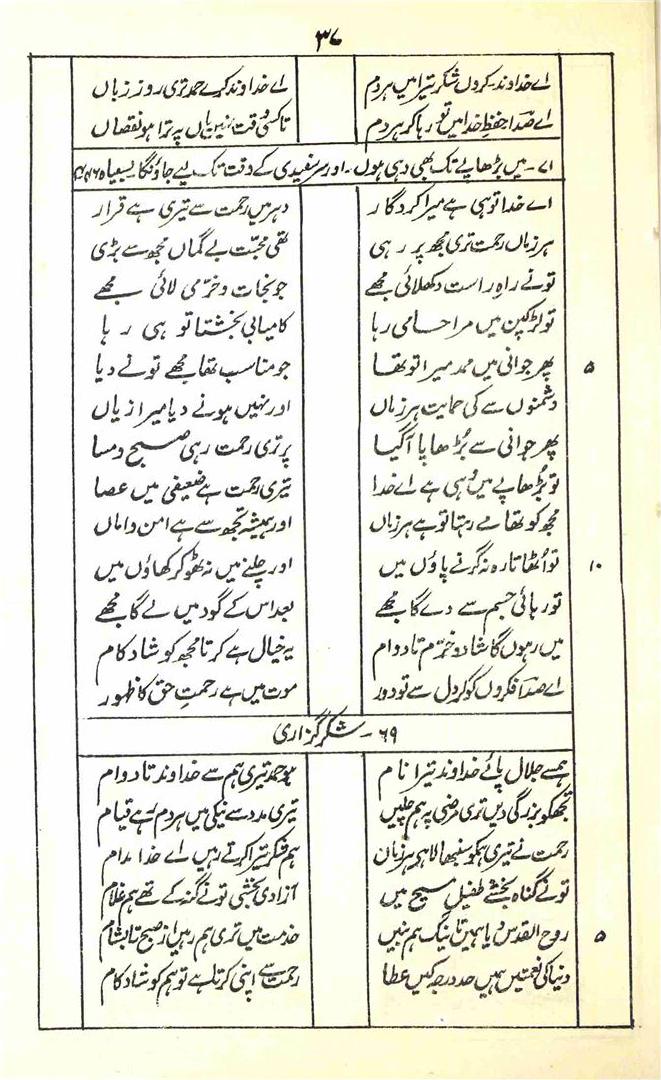 ۳۷
اے خداوند کروں شکر تیرا میں ہر دم اے خداوند کرے حمد تری روز زباں
اے صدا حفظِ خدا میں تو رہا کر ہر دم تا کسی وقت نہیں یاں پہ ترا ہو نقصاں
۷۱- میں بڑھاپے تک بھی وہی ہوں۔ اور سر سفیدی کے وقت تک لیے جاؤنگا یسعیاہ ۴۶:۴
اے خدا تو ہی ہے میرا کردگار دہر میں رحمت سے تیری ہے قرار
ہر زباں رحمت تری مجھ پر رہی تھی محبّت بے گماں مجھ سے بڑی
تونے راہِ راست دکھلائی مجھے جو نجات و خرّمی لائی مجھے
تو لڑکپن میں مرا حامی رہا کامیابی بخشتا تو ہی رہا
۵ پھر جوانی میں ممد میرا تو تھا جو مناسب تھا مجھے تونے دیا
دشمنوں سے کی حمایت ہر زباں اور نہیں ہونے دیا میرا زیاں
پھر جوانی سے بُڑھاپا آ گیا پر تری رحمت رہی صبح و مسا
تو بُڑھاپے میں وُہی ہے اے خدا تیری رحمت ہے ضعیفی میں عصا
مجھ کو تھامے رہتا تو ہے ہر زباں اور ہمیشہ تجھ سے ہے امن و اماں
۱۰ تو اُٹھاتا رہ نہ گرنے پاؤں میں اور چلنے میں نہ ٹھوکر کھاؤں میں
تو رہائی جسم سے دے گا مجھے بعد اس کے گود میں لے گا مجھے
میں رہوں گا شاد و خرّم تا دوام یہ خیال ہے کرتا مجھ کو شاد کام
اے صدا فکروں کو کر دل سے تو دور موت میں ہے رحمتِ حق کا ظہور
۶۹- شکر گزاری
ہمسے جلال پائے خداوند تیرا نام ہو حمد تیری ہم سے خداوند تا دوام
تجھکو بزرگی دیں تری مرضی پہ ہم چلیں تیری مدد سے نیکی میں ہر دم رہے قیام
رحمت نے تیری ہمکو سنبھالا ہر زبان ہم شکر تیرا کرتے رہیں اے خدا مدام
تونے گناہ بخشے طفیلِ مسیح میں آزادی بخشی تونے گنہ کے تھے ہم غلام
۵ روح القدس دیا ہمیں تا نیک ہم بنیں خدمت میں تری ہم رہیں از صبح تا بشام
دنیا کی نعمتیں ہمیں حد درجہ کیں عطا رحمت سے اپنی کرتا ہے تو ہم کو شاد کام